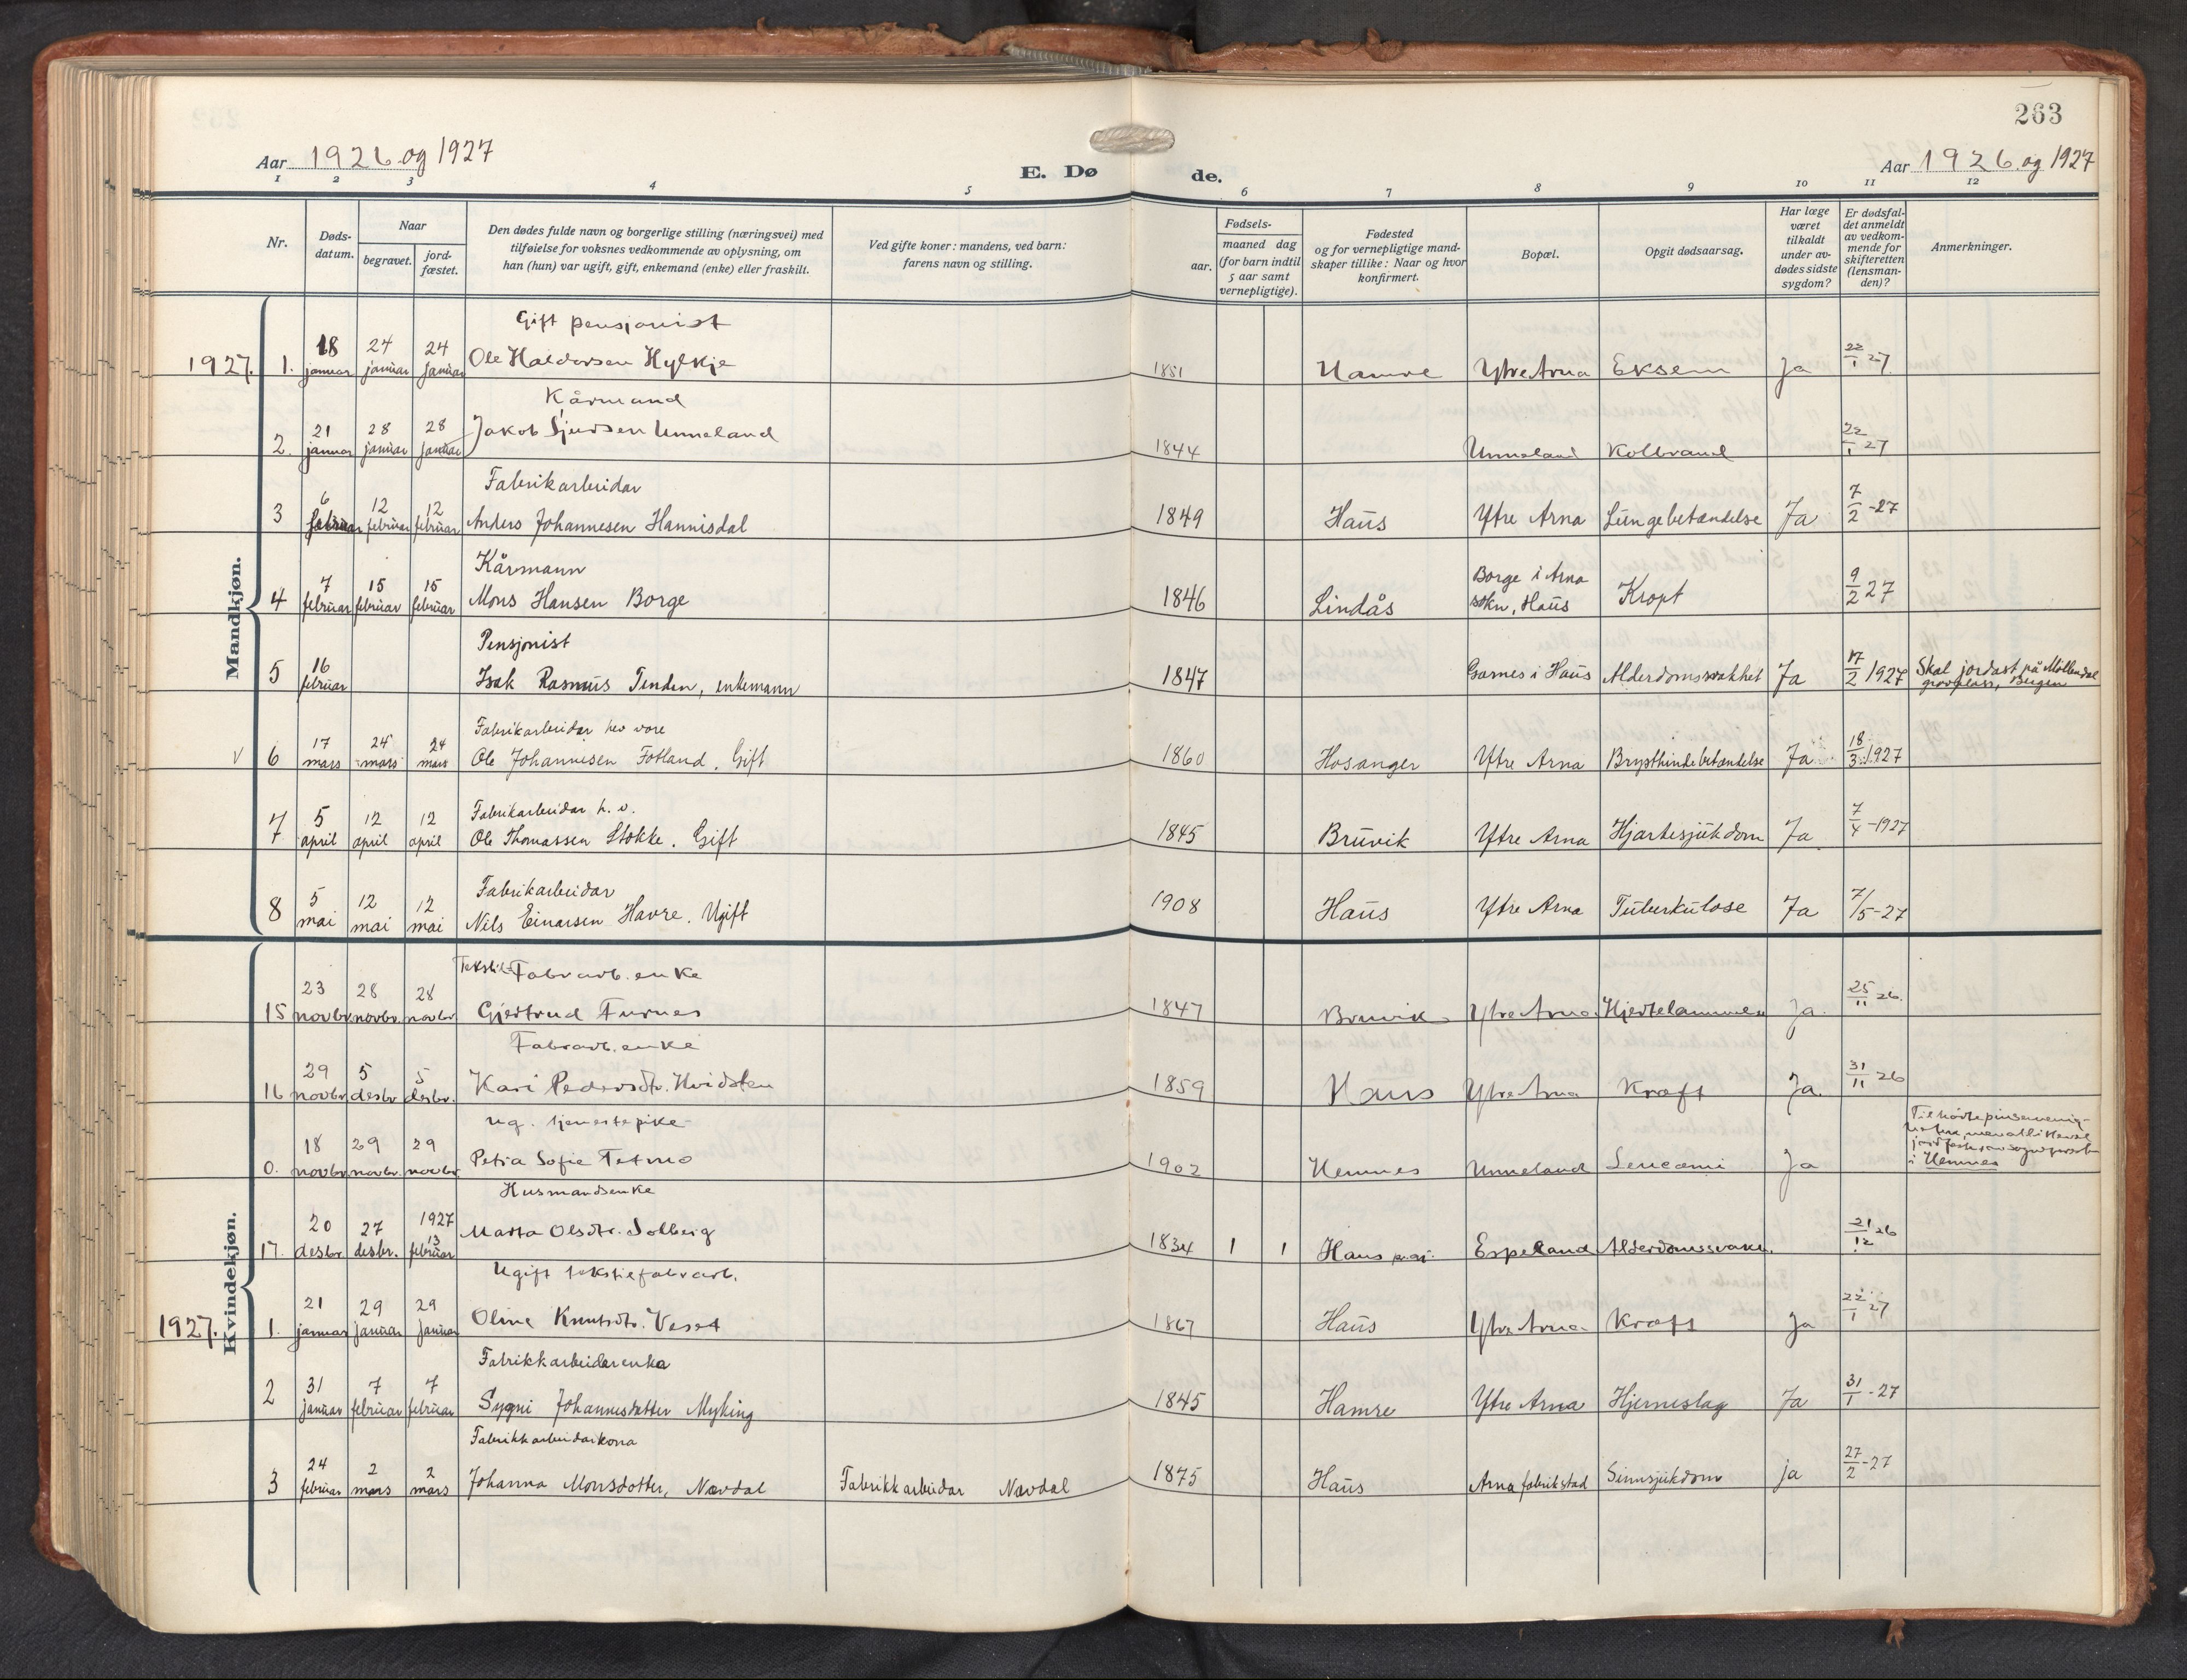 263
Aar 1926 og 1927
E. Døde.
Aar 1926 og 1927
1 2 3 4 5 6 7 8 9 10 11 12
Nr.
Døds-
datum.
Naar
begravet.
jord-
fæstet.
Den dødes fulde navn og borgerlige stilling (næringsvei) med
tilføielse for voksnes vedkommende av oplysning, om
han (hun) var ugift, gift, enkemand (enke) eller fraskilt.
Ved gifte koner: mandens, ved barn:
farens navn og stilling.
Fødsels-
aar.
maaned dag
(for barn indtil
5 aar samt
vernepligtige).
Fødested
og for vernepligtige mand-
skaper tillike: Naar og hvor
konfirmert.
Bopæl.
Opgit dødsaarsag.
Har læge
været
tilkaldt
under av-
dødes sidste
sygdom?
Er dødsfal-
det anmeldt
av vedkom-
mende for
skifteretten
(lensman-
den)?
Anmerkninger.
Mandkjøn.
Gift pensjonist
1927. 1. 18 januar 24 januar 24 januar Ole Haldorsen Hylkje 1851 Hamre Ytre Arna Eksem Ja 22/1 27
Kårmand
2. 21 januar 28 januar 28 januar Jakob Sjursen Unneland 1844 Unneland Kolbrand 22/1 27
Fabrikarbeidar
3 6 februar 12 februar 12 februar Anders Johannesen Hannisdal 1849 Haus Ytre Arna Lungebetændelse Ja 7/2 -27
Kårmann
4 7 februar 15 februar 15 februar Mons Hansen Borge 1846 Lindås Borge i Arna
sokn, Haus Kropt 9/2 27
Pensjonist
5 16 februar Isak Rasmus Tenden, enkemann 1847 Garnes i Haus Alderdomssvakhet Ja 17/2 1927 Skal jordast på Møllendal
gravplass, Bergen
Fabrikarbeidar hev vore
6 17 mars 24 mars 24 mars Ole Johannesen Fotland. Gift 1860 Hosanger Ytre Arna Brysthindebetændelse Ja 18/3 1927
Fabrikarbeidar h. v.
7 5 april 12 april 12 april Ole Thomassen Stokke. Gift 1845 Bruvik Ytre Arna Hjartesjukdom Ja 7/4 -1927
Fabrikarbeidar
8 5 mai 12 mai 12 mai Nils Einarsen Havre. Ugift 1908 Haus Ytre Arna Tuberkulose Ja 7/5-27
Kvindekjøn.
Tekstil Fabrarb. enke
15 23 novbr. 28 novbr. 28 novbr. Gjertrud Furnes 1847 Bruvik Ytre Arna Hjertelammelse Ja. 25/11 26.
Fabrarb. enke
16 29 novbr. 5 desbr. 5 desbr. Kari Pedersdtr. Hvidsten 1859 Haus Ytre Arna Kræft Ja. 31/11 26
ug. tjenestepike
0. 18 novbr. 29 novbr. 29 novbr. Petra Sofie 1902 Hemnes Unneland Leucæmi Ja
i Hemnes
Husmandsenke
17. 20 desbr. 27 desbr. 1927 13 februar Marta Olsdtr. Solberg 1834 1 1 Haus Espeland Alderdomssvakh. 21/12 26
Ugift tekstilfabrarb.
1927. 1. 21 januar 29 januar 29 januar Oline Knutsdtr. Veset 1867 Haus Ytre Arna Kræft Ja 22/1 27
Fabrikkarbeidarenka
2 31 januar 7 februar 7 februar Sygni Johannesdatter Myking 1845 Hamre Ytre Arna Hjerneslag Ja 31/1 -27
Fabrikkarbeidarkona
3 24 februar 2 mars 2 mars Johanna Monsdotter, Nævdal Fabrikkarbeidar Nævdal 1875 Haus Arna fabrikstad Sinnsjukdom ja 27/2 -27